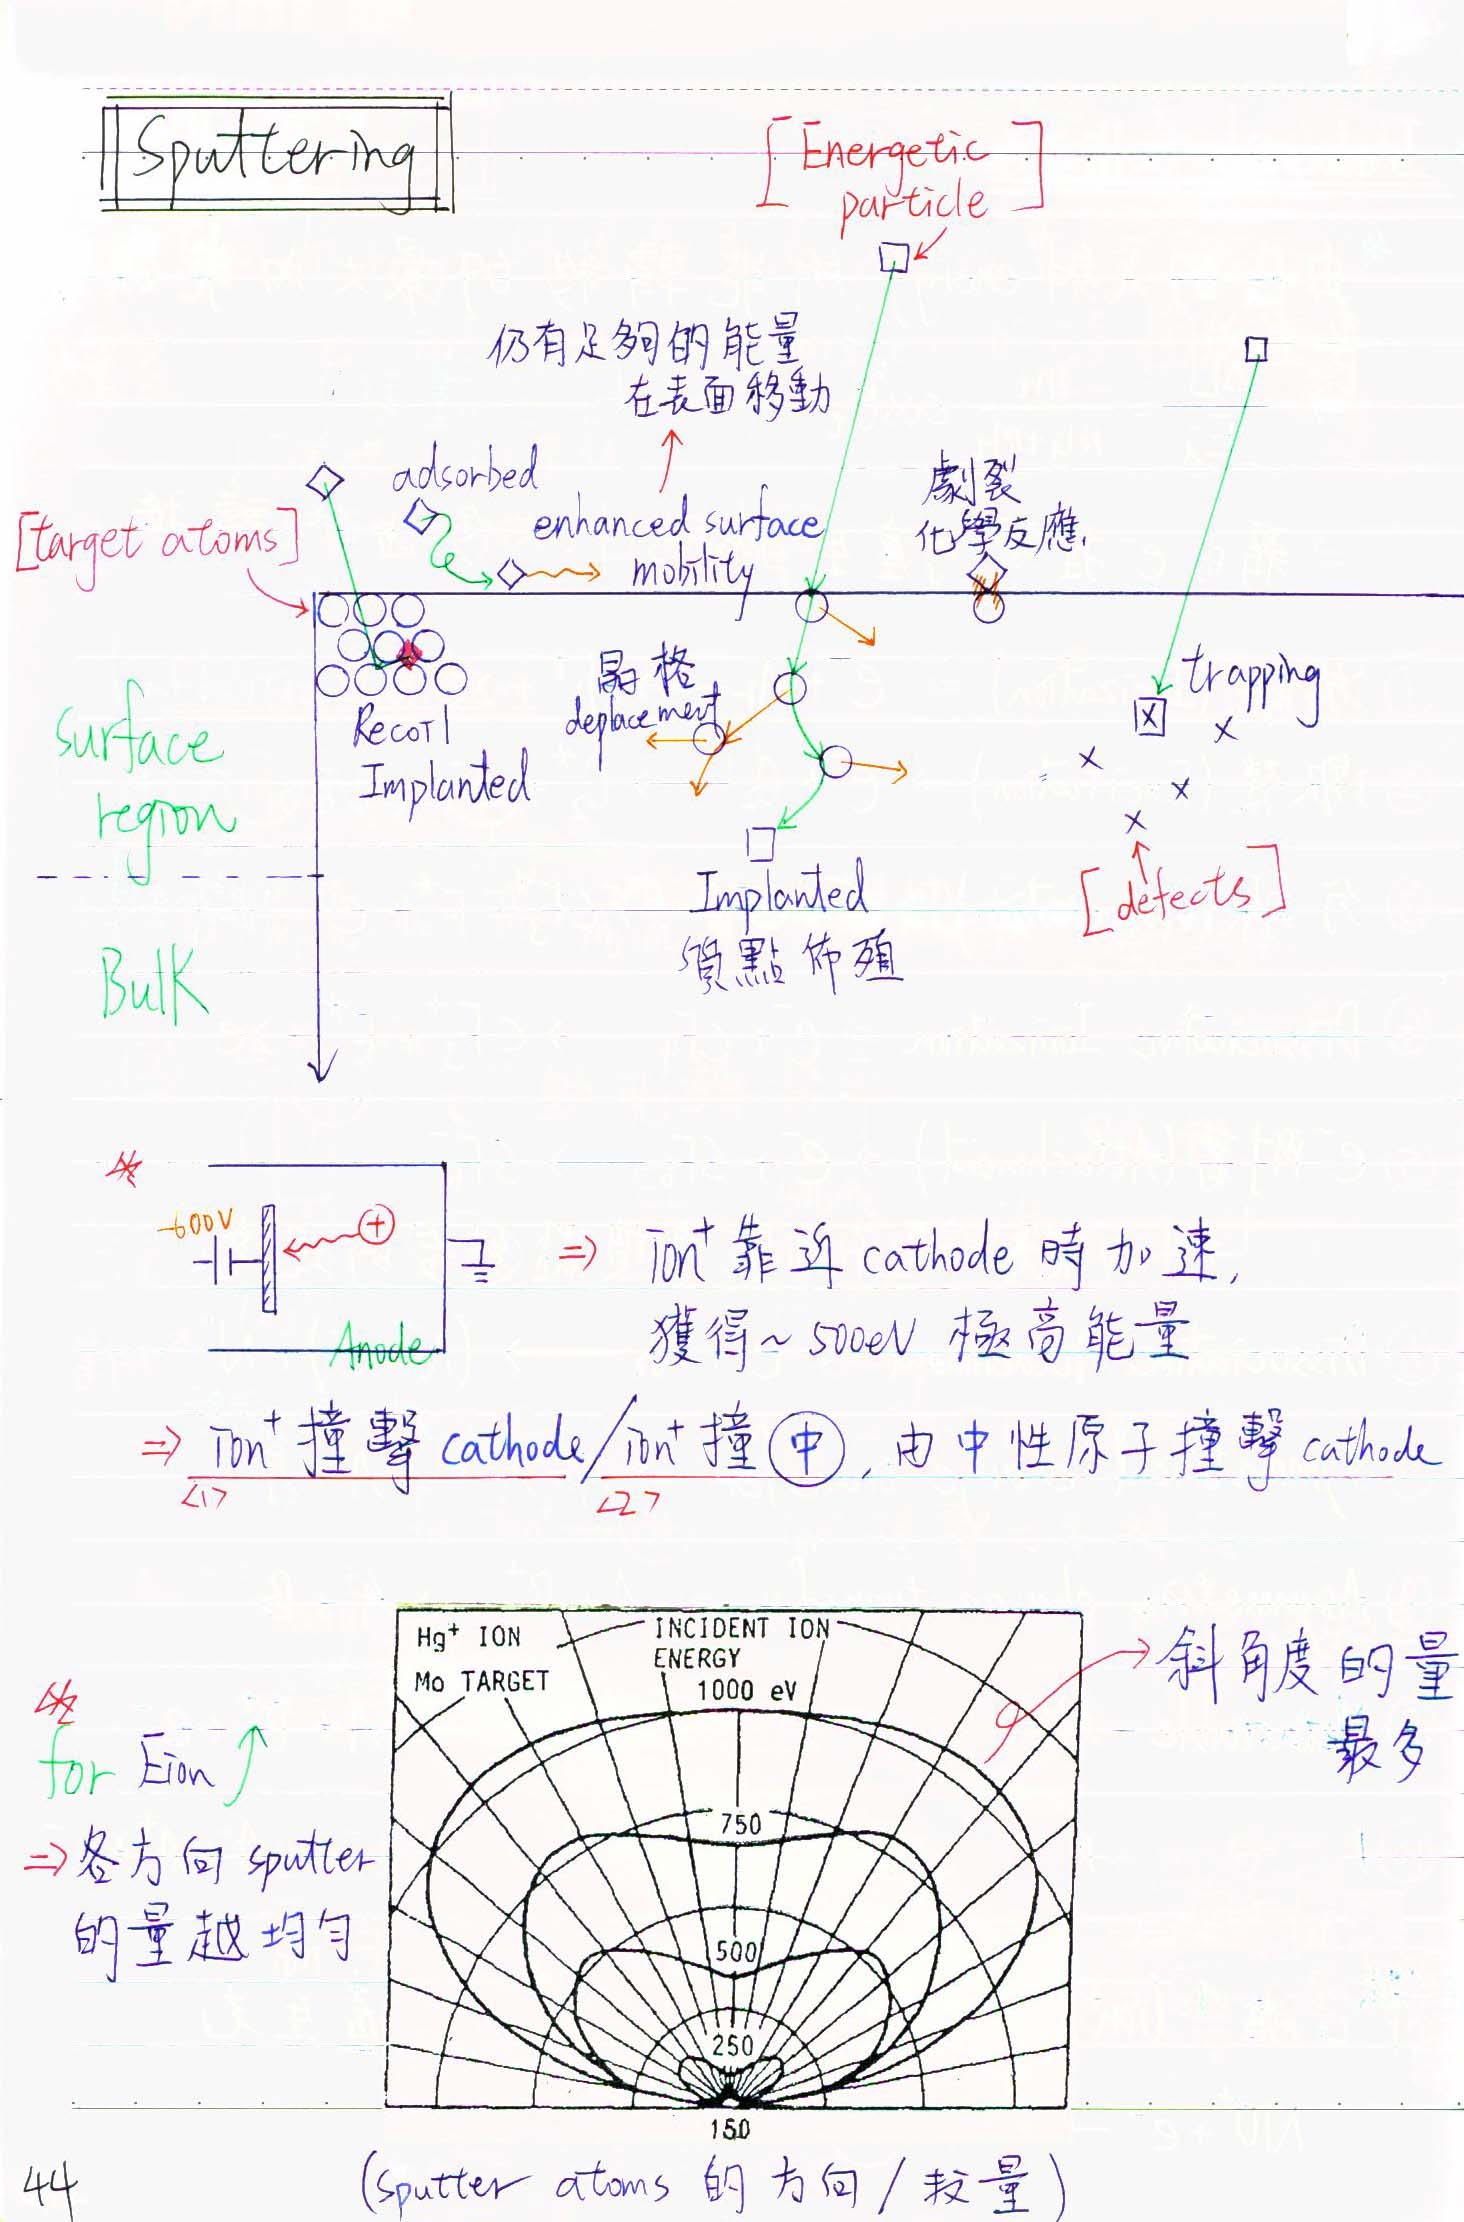 Sputtering
[Energetic
particle]
仍有足夠的能量
在表面移動
adsorbed
劇裂
化學反應
[target atoms]
enhanced surface
mobility
晶格
deplacement
trapping
Recoil
Implanted
surface
region
Implanted
質點佈殖
[defects]
Bulk
-600V
+
Anode
⇒ ion⁺ 靠近 cathode 時加速,
獲得~500eV 極高能量
⇒ ion⁺ 撞擊 cathode / ion⁺ 撞 中, 由中性原子撞擊 cathode
<1> <2>
Hg⁺ ION
MO TARGET
INCIDENT ION
ENERGY
1000 eV
750
500
250
150
斜角度的量
最多
for Eion ↑
⇒ 各方向 sputter
的量越均勻
(sputter atoms 的方向/数量)
44